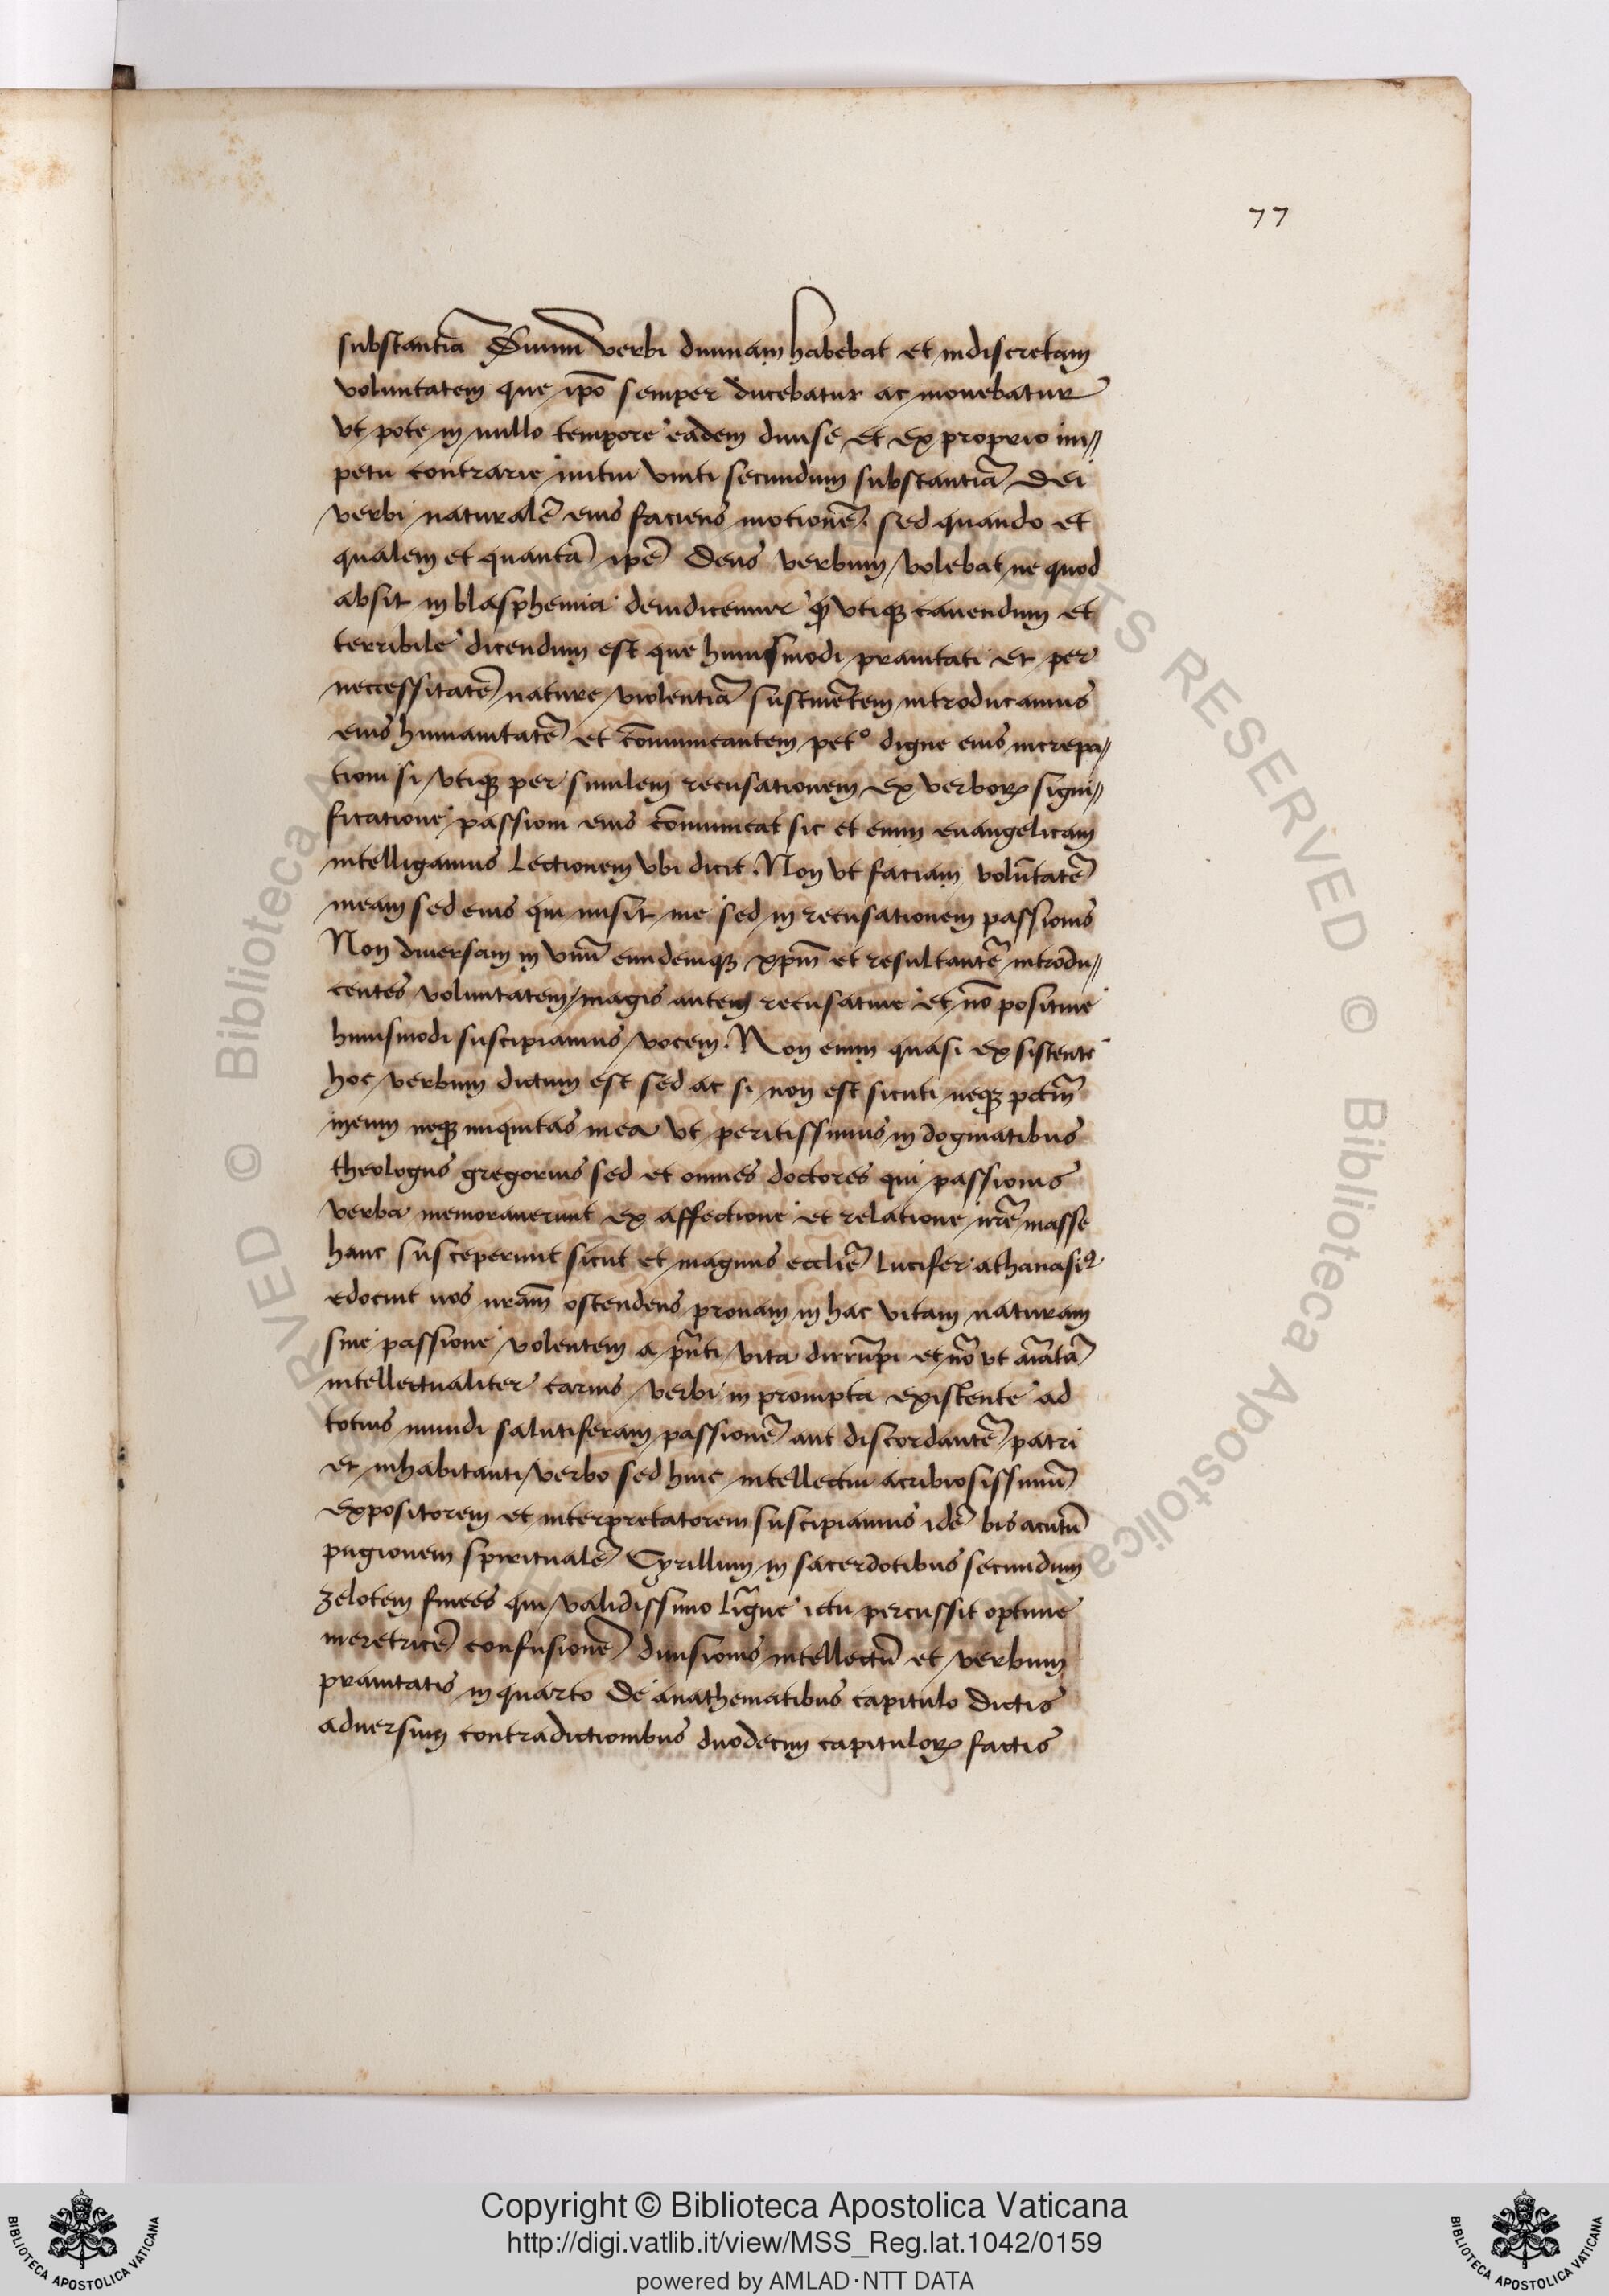 77
substantiā Diuini verbi diuinam habebat et indiscretam
voluntatem que ipō semper ducebatur ac monebatur
vt pote in nullo tempore eadem diuise et ex proprio im//
petu contrarie nutui vniti secundum substantiā Dei
verbi naturalē eius faciens motionē. sed quando et
qualem et quantā ipē Deus verbum volebat ne quod
absit in blasphemia deiudicemur qȝ vtiqȝ cauendum et
terribile dicendum est que huiusmodi prauitati et per
neccessitatē nature violentiā sustinētem introducamus
eius humanitatē et cōmunicantem petº digne eius increpa//
tioni si vtiqȝ per similem recusationem ex verboꝝ signi//
ficatione passioni eius cōmunicat sic et enim euangelicam
intelligamus Lectionem vbi dicit. Non vt faciam volūtatē
meam sed eius qui misit me sed in recusationem passionis
Non diuersam in vnū eundemqȝ xp̄m et resultantē introdu//
centes voluntatem magis autem recusatiue et nō positiue
huiusmodi suscipiamus vocem. Non enim quasi exsistente
hoc verbum dictum est sed ac si non est sicuti neqȝ pctm̄
meum neqȝ iniquitas mea vt peritissimus in dogmatibus
theologus gregorius sed et omnes doctores qui passionis
verba memorauerunt ex affectione et relatione nrē masse
hanc susceperunt sicut et magnus ecclie̅ Lucifer athanasiꝰ
edocuit nos nram̄ ostendens pronam in hac vitam naturam
sine passione volentem a pn̄ti vita dirrūpi et nō vt aīatā
intellectualiter carnis verbi in prompta existente ad
totius mundi salutiferam passionē aut discordantē patri
et inhabitanti verbo sed huic intellectui acribiosissimū
expositorem et interpretatorem suscipiamus idē bis acutū
pugionem spiritualē Cyrillum in sacerdotibus secundum
zelotem finees qui validissimo līgue ictu percussit optime
meretricē confusionē diuisionis intellectū et verbum
prauitatis in quarto de anathematibus capitulo dictis
aduersum contradictionibus duodecim capituloꝝ factis
Copyright © Biblioteca Apostolica Vaticana
http://digi.vatlib.it/view/MSS_Reg.lat.1042/0159
powered by AMLAD·NTT DATA